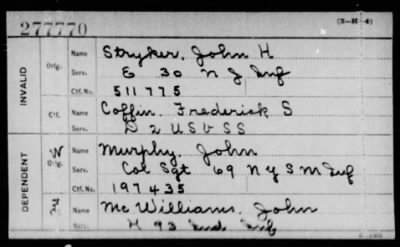 277770 (3-H-4)
INVALID
Orig. Name Stryker, John H
Serv. E 30 N J Inf
Ctf. No. 511775
Ctf. Name Coffin, Frederick S
Serv. D 2 U S V S S
DEPENDENT
W Orig. Name Murphy, John
Serv. Col Sgt 69 N Y S M Inf
Ctf. No. 197435
Name Mc Williams, John
Serv. H 93 Ind Inf